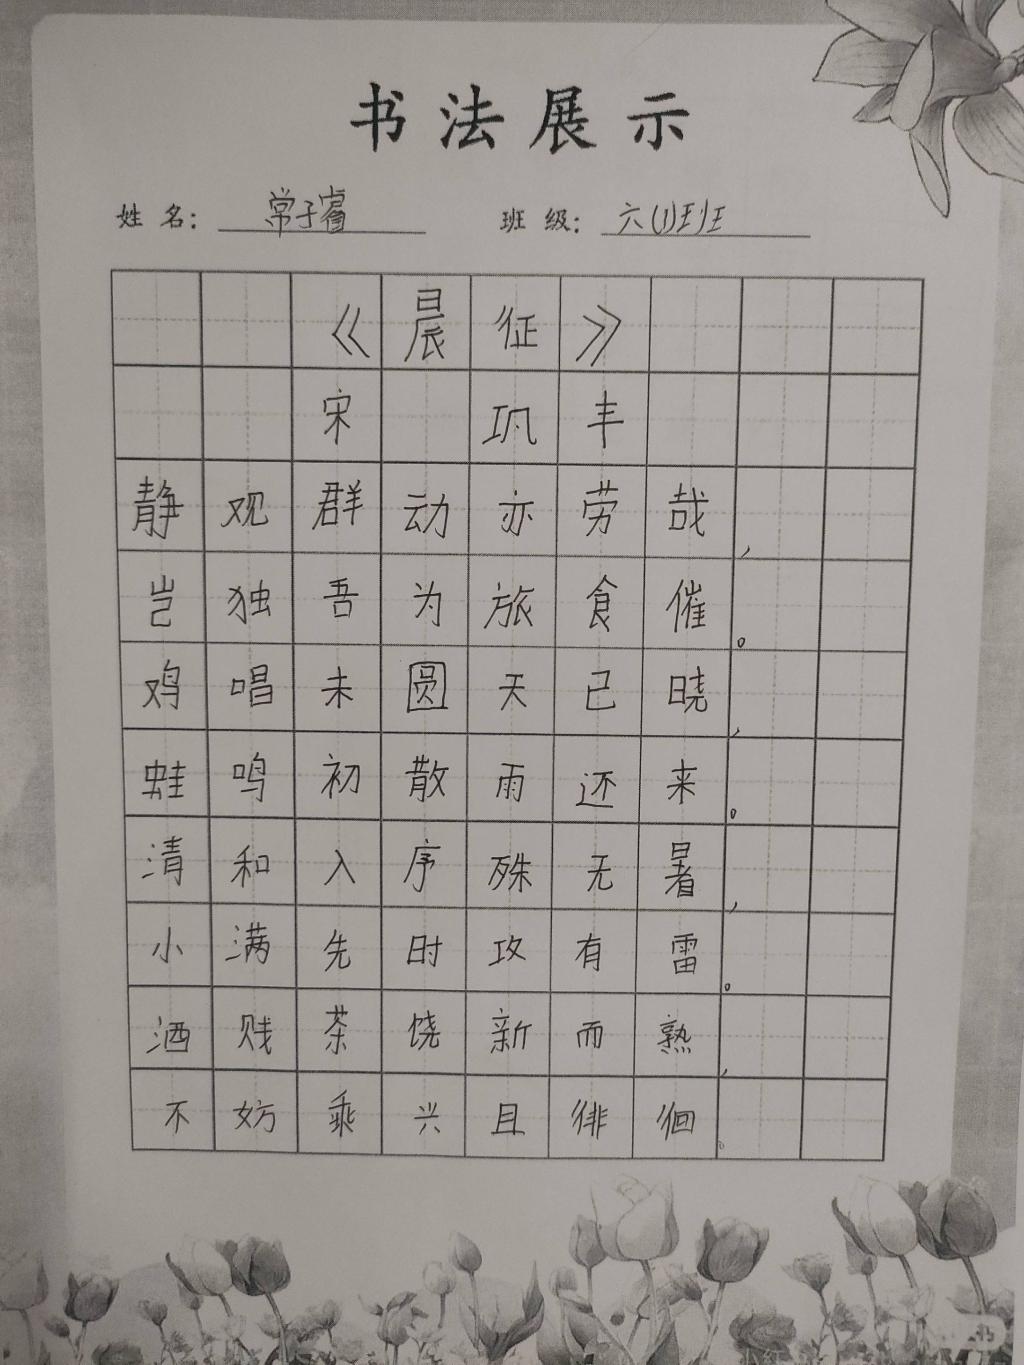 书法展示
姓名：常子睿 班级：六(1)班
《晨征》
宋 巩丰
静观群动亦劳哉，
岂独吾为旅食催。
鸡唱未圆天已晓，
蛙鸣初散雨还来。
清和入序殊无暑，
小满先时攻有雷。
酒贱茶饶新而熟，
不妨乘兴且徘徊。